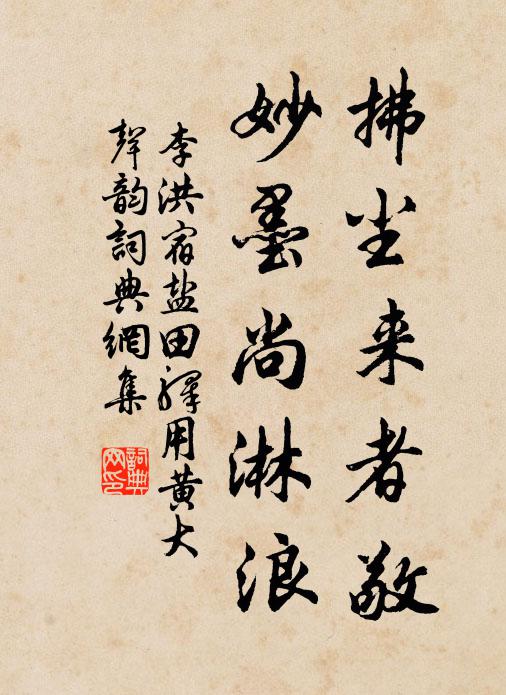 拂尘来者敬
妙墨尚淋浪
李洪宿盐田驿用黄大
声韵词典網集
詞典网印